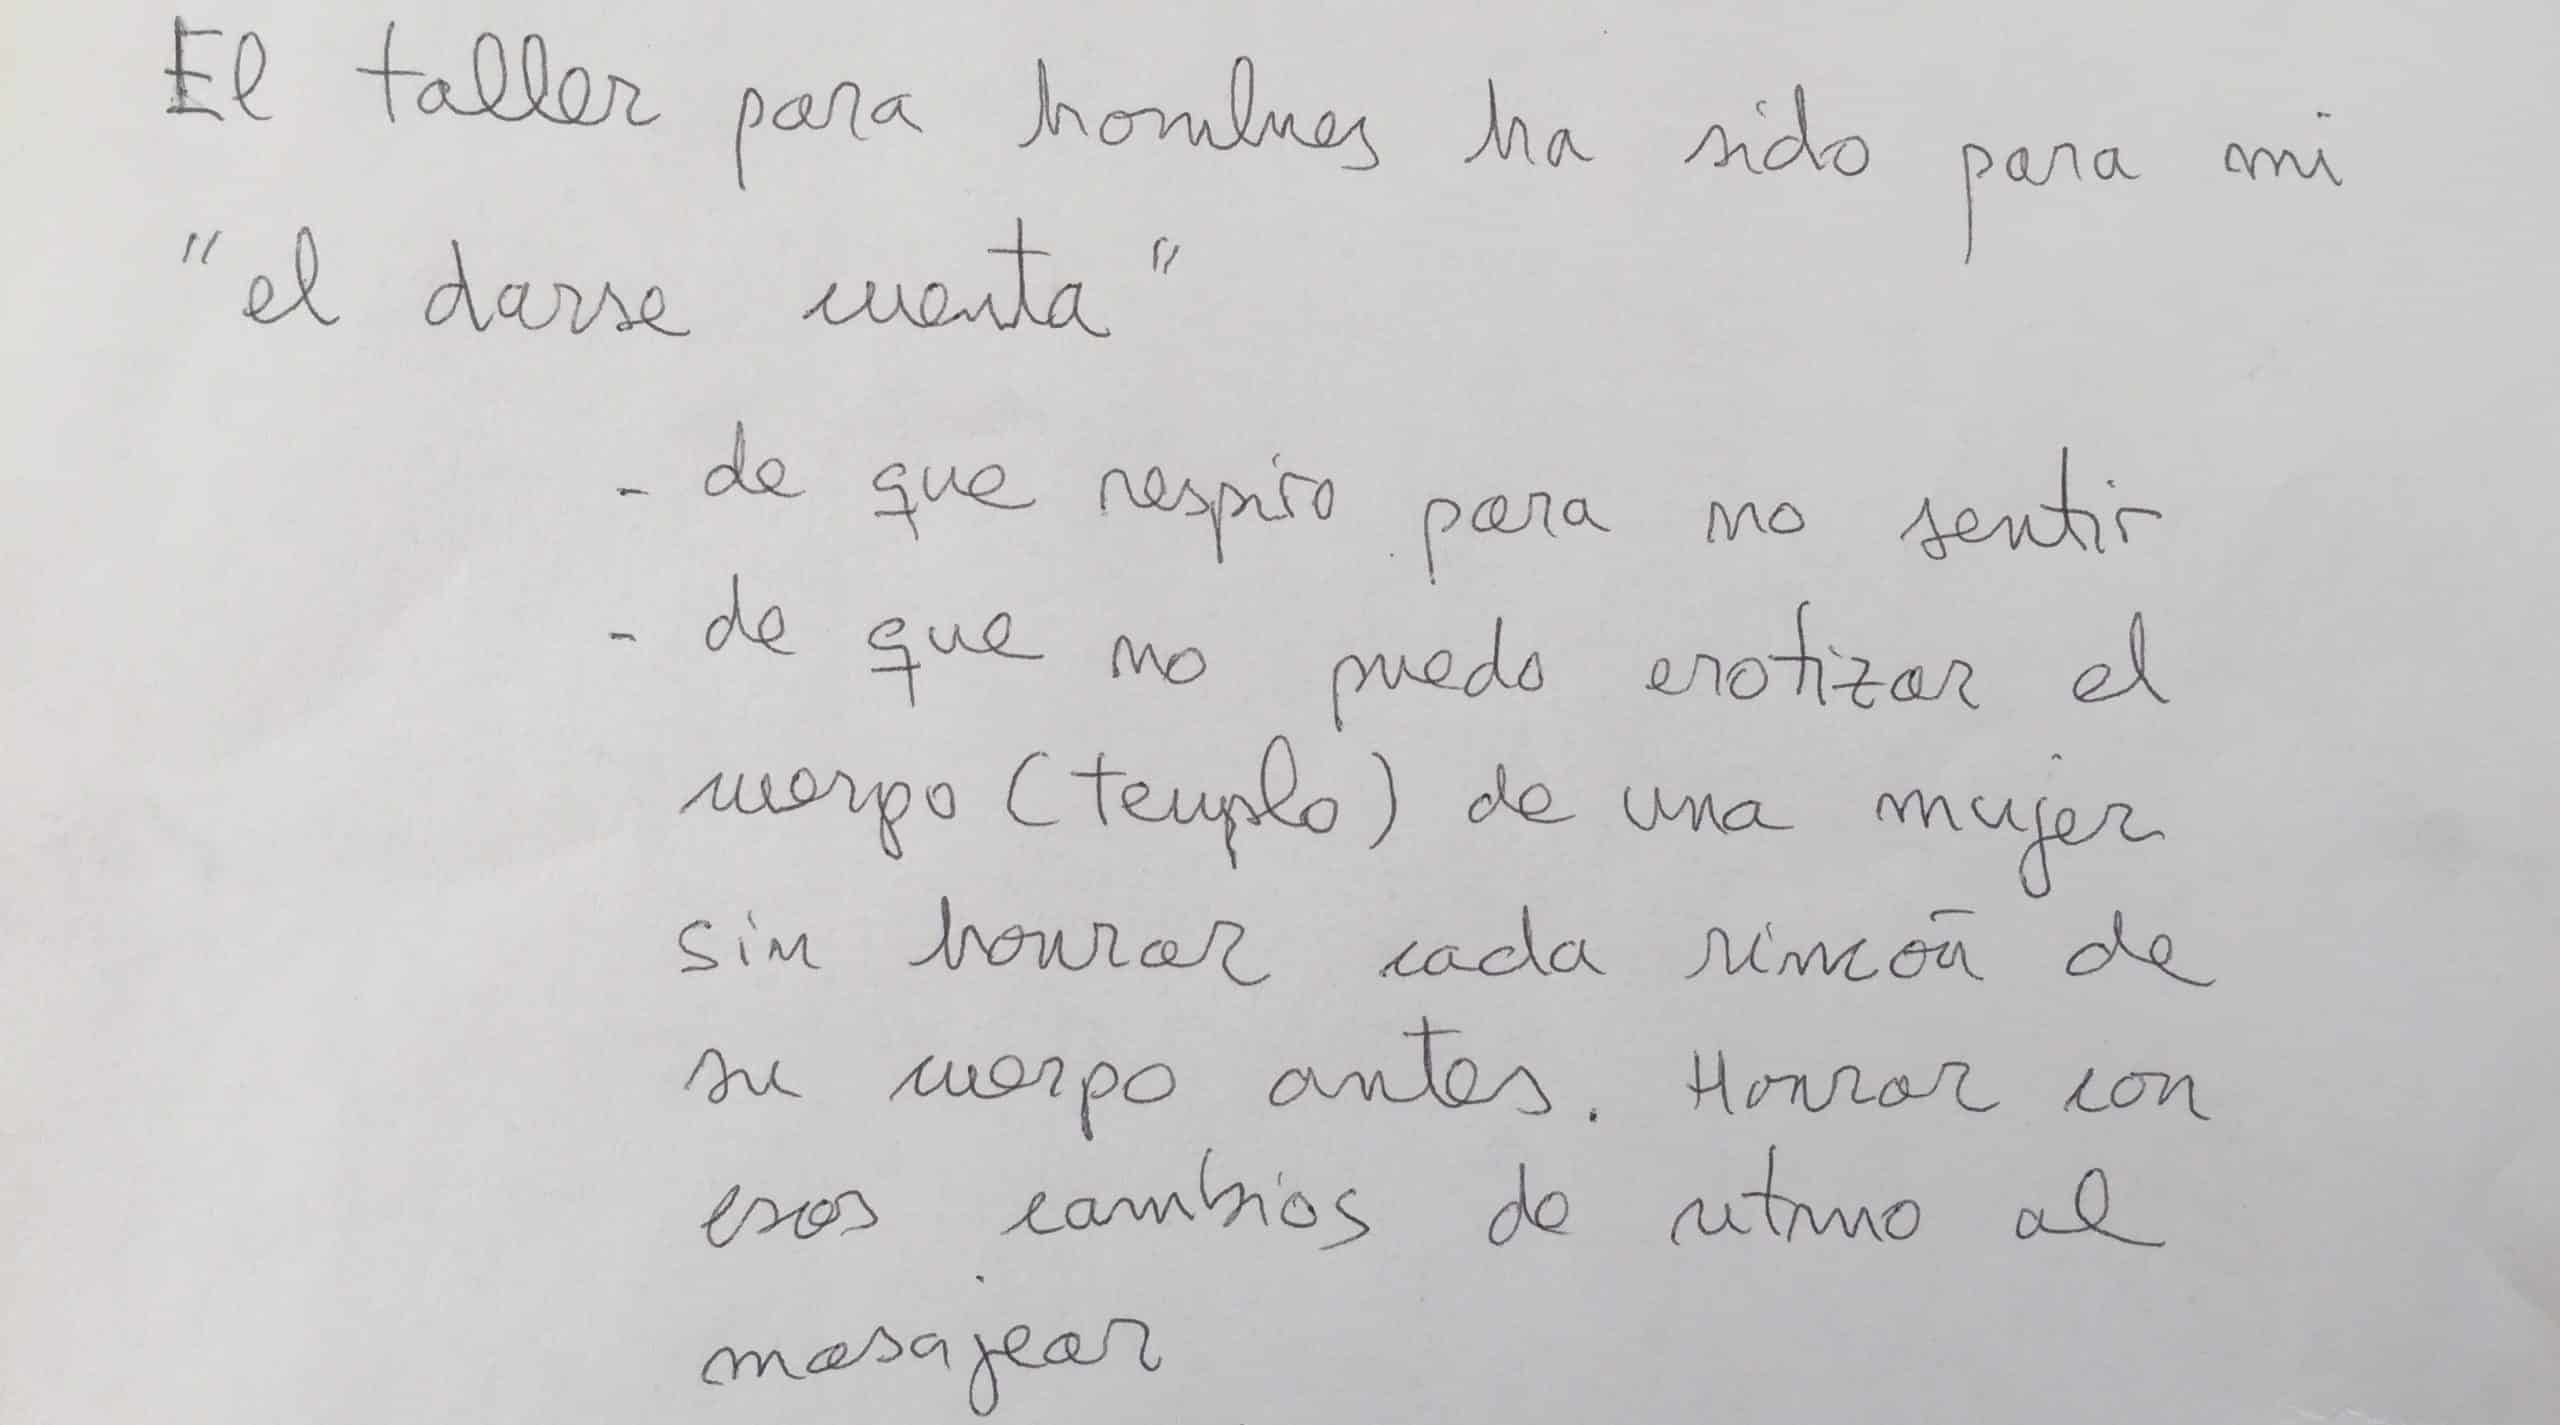 El taller para hombres ha sido para mi
"el darse cuenta"
- de que respiro para no sentir
- de que no puedo erotizar el
cuerpo (templo) de una mujer
sin honrar cada rincón de
su cuerpo antes. Honrar con
esos cambios de ritmo al
masajear